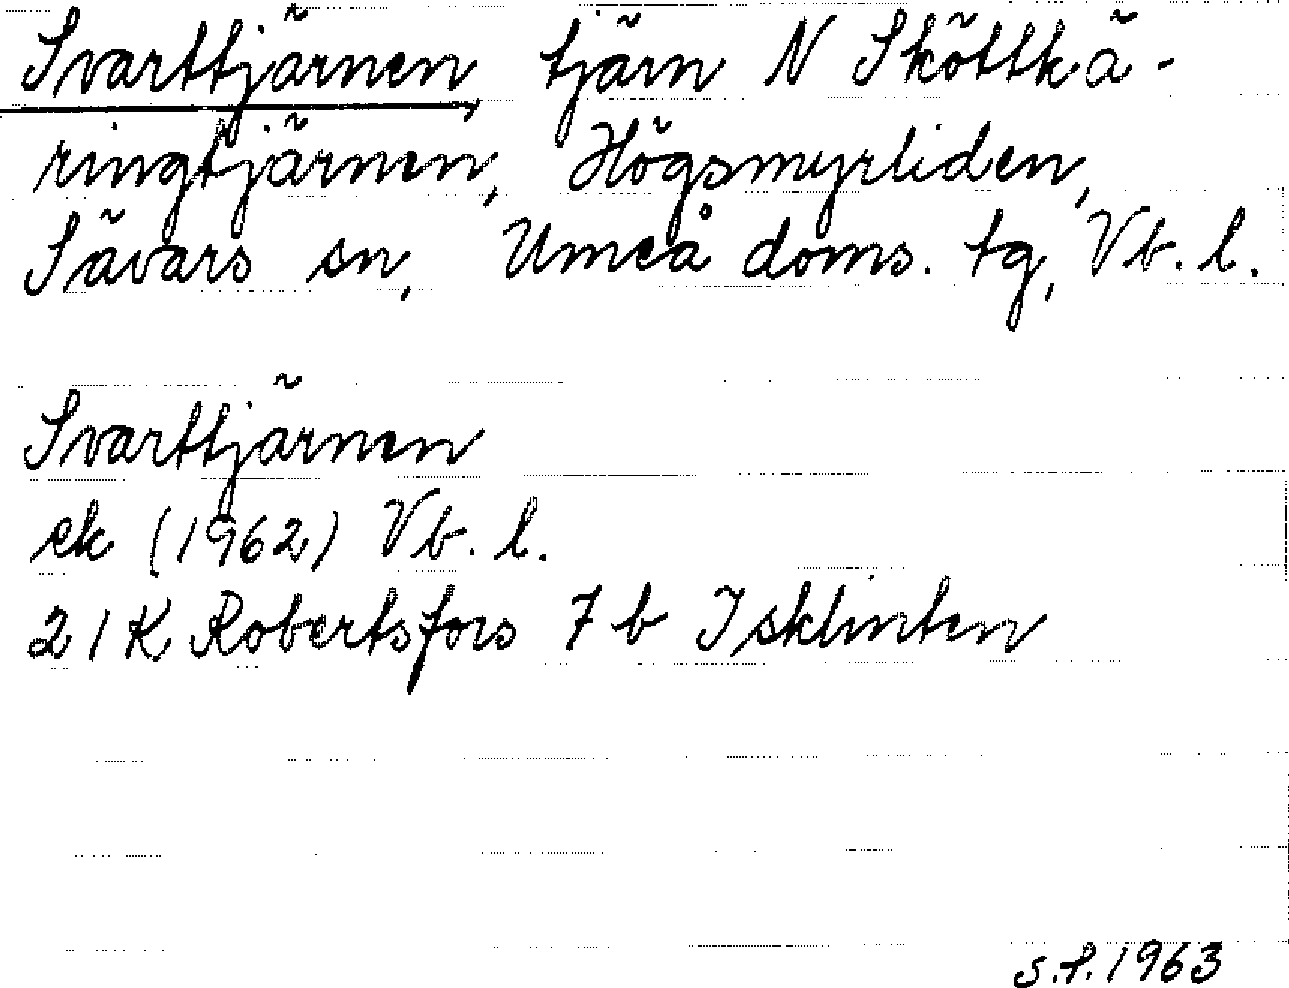 Svarttjärnen, tjärn N Sköttkä-
ringtjärnen, Högsmyrliden,
Sävars sn, Umeå doms. tg, Vb. l.
Svarttjärnen
ek (1962) Vb. l.
21K Robertsfors 7 b Isklinten
s.f. 1963